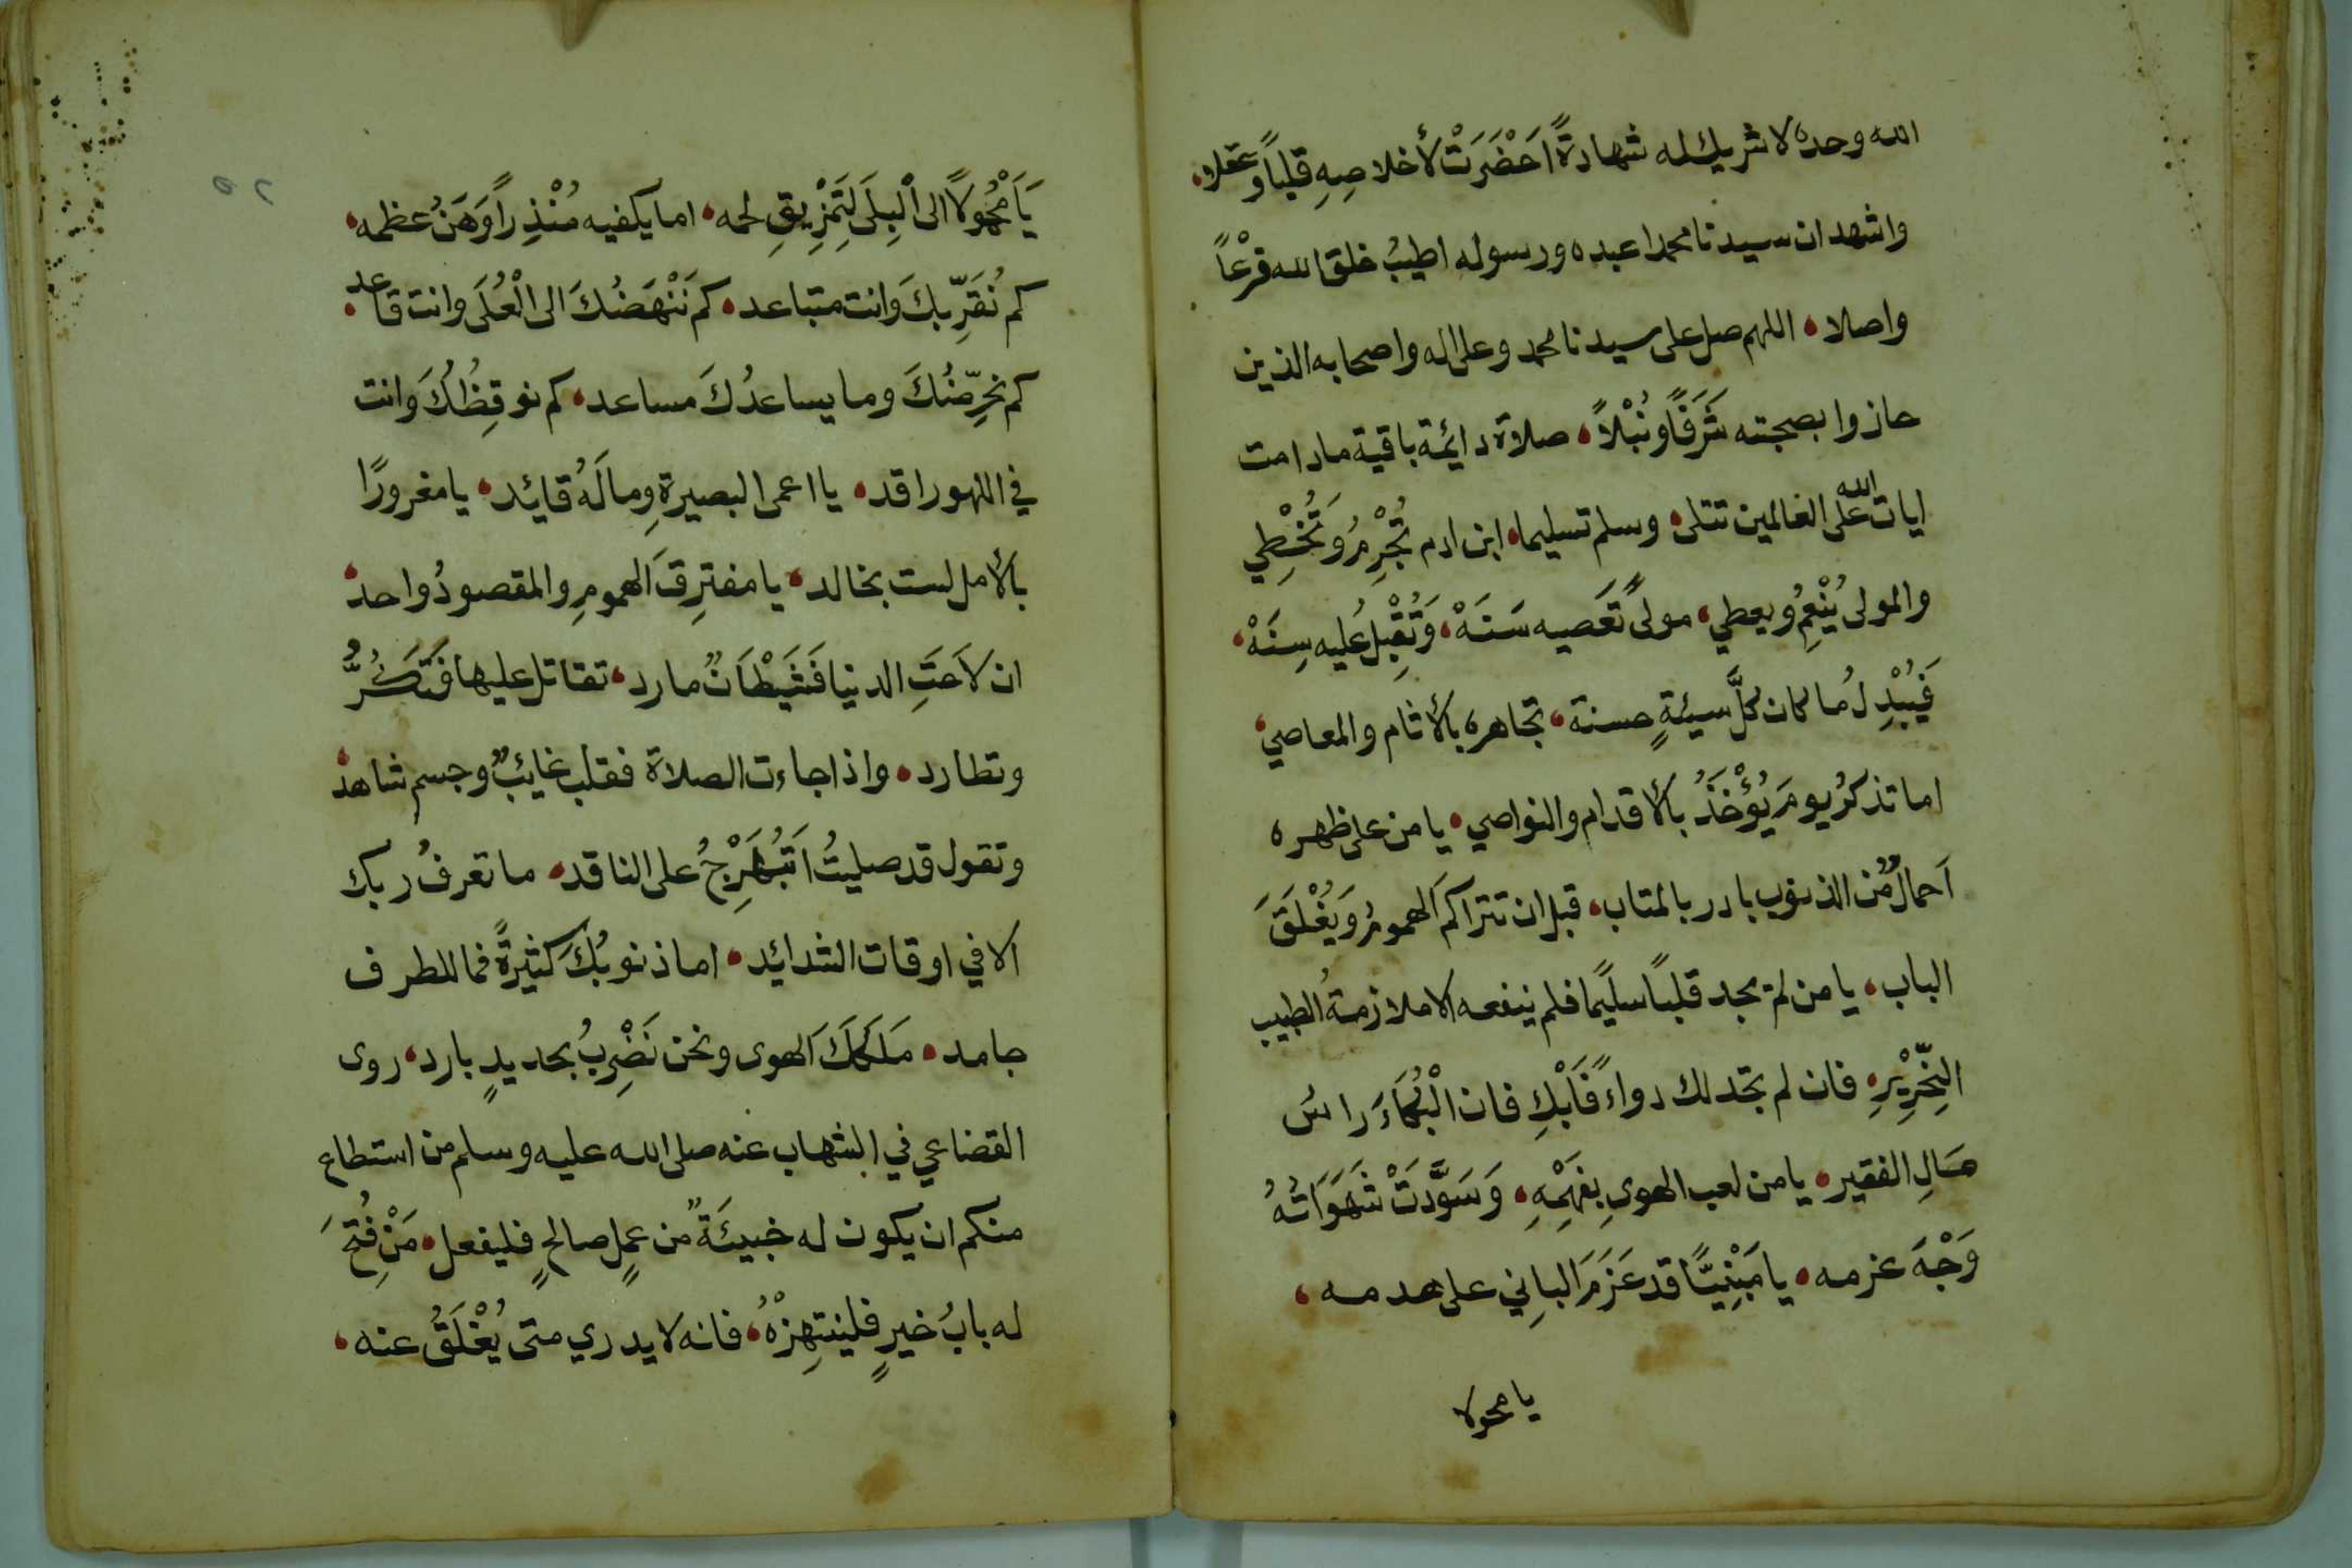 الله وحده لا شريك له شهادةً اَحْضَرَتْ لأخلاصِهِ قلباً وعقلا،
واشهد ان سيدنا محمدا عبده ورسوله اطيبُ خلق الله فرْعاً
واصلا، اللهم صل على سيدنا محمد وعلى اله واصحابه الذين
حازوا بصحبته شَرَفًا ونُبْلاً، صلاة دائمة باقية مادامت
ايات الله على العالمين تتلى، وسلم تسليما، ابن ادم تُجْرِمُ وَتُخْطِي
والمولى يُنْعِمُ ويعطي، مولىً تَعَصيه سَنَهْ، وَتُقْبِلُ عليه سِنَهْ،
فَيُبْدِلُ ما كان كلَّ سيئةٍ حسنة، تجاهره بالأثام والمعاصي،
اما تذكرُ يومَ يُؤْخَذُ بالأقدام والنواصي، يا من على ظهره
اَحمالٌ من الذنوب بادر بالمتاب، قبل ان تتراكمَ الهمومُ وَيُغْلَقَ
الباب، يا من لم يجد قلباً سليمًا فلم ينفعه الا ملازمةُ الطبيب
النِّحْرِيْرِ، فان لم تجد لك دواءً فَابْكِ فان الْبُكَاءَ راسُ
مَالِ الفقير، يا من لعب الهوى بِفَهْمِهِ، وَسَوَّدَتْ شَهَوَاتُهُ
وَجْهَ عزمه، يا مَبْنِيًّا قد عَزَمَ البانِي على هدمه،
يا محمولا
٥٢
يَا مَحْمُولاً الى الْبِلَى لِتَمْزِيقِ لحمه، اما يكفيه مُنْذِراً وَهَنُ عظمه،
كم نُقَرِّبكَ وانت متباعد، كم نَنْهَضُكَ الى الْعُلَى وانت قاعد،
كم نحرِّضُكَ وما يساعدُكَ مساعد، كم نوقِظُكَ وانت
في اللهو راقد، يا اعمى البصيرةِ وما لَهُ قائد، يا مغرورًا
بالأمل لست بخالد، يا مفترِقَ الهمومِ والمقصودُ واحد،
ان لاَحَتِ الدنيا فَشَيْطَانٌ مارد، تقاتل عليها فَتَكُرُّ
وتطارد، واذا جاءت الصلاة فقلب غائبٌ وجسم شاهد،
وتقول قد صليتُ اَتَبُهَرْجُ على الناقد، ما تعرفُ ربك
الا في اوقات الشدائد، اما ذنوبُكَ كثيرةً فما للطرف
جامد، مَلَكَكَ الهوى ونحن نَضْرِبُ بحديدٍ بارد، روى
القضاعي في الشهاب عنه صلى الله عليه وسلم من استطاع
منكم ان يكون له خبيئَةٌ من عملٍ صالحٍ فليفعل، مَنْ فُتِحَ
له بابُ خيرٍ فلينتهِزْهُ، فانه لا يدري متى يُغْلَقُ عنه،